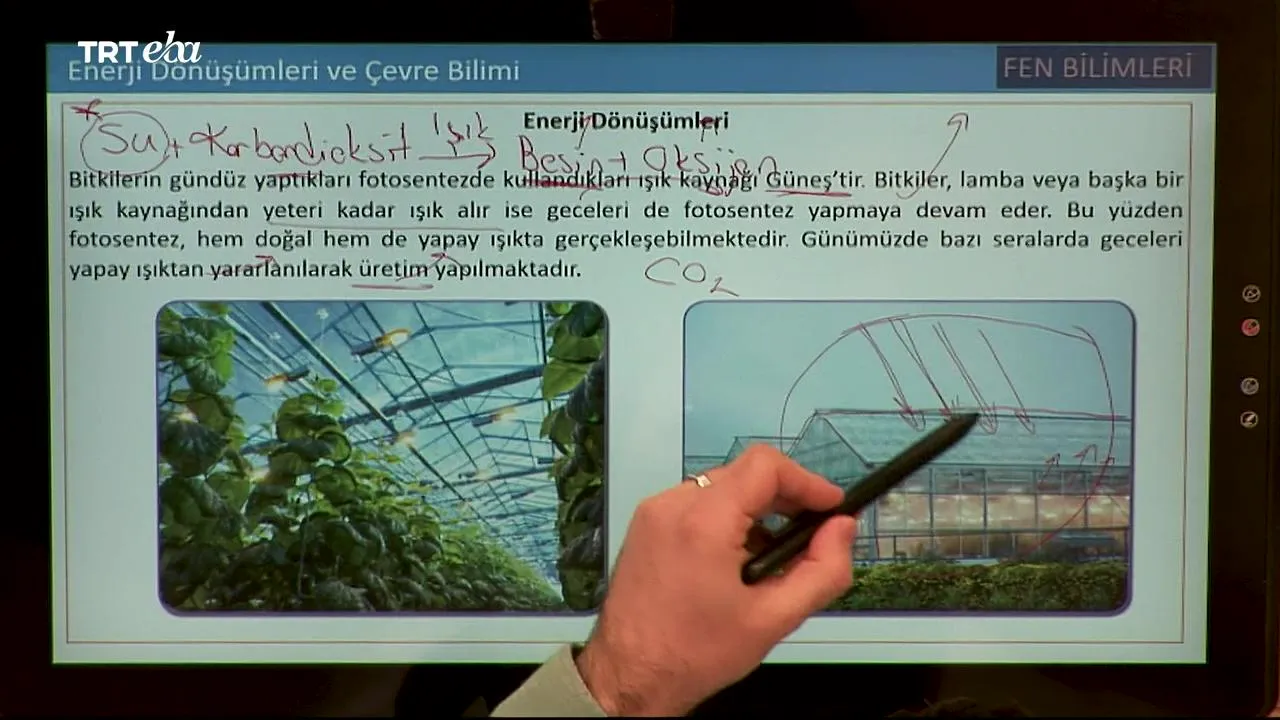 TRT eba
Enerji Dönüşümleri ve Çevre Bilimi
FEN BİLİMLERİ
Enerji Dönüşümleri
Su + Karbondioksit Işık → Besin + Oksijen
Bitkilerin gündüz yaptıkları fotosentezde kullandıkları ışık kaynağı Güneş'tir. Bitkiler, lamba veya başka bir
ışık kaynağından yeteri kadar ışık alır ise geceleri de fotosentez yapmaya devam eder. Bu yüzden
fotosentez, hem doğal hem de yapay ışıkta gerçekleşebilmektedir. Günümüzde bazı seralarda geceleri
yapay ışıktan yararlanılarak üretim yapılmaktadır.
CO₂